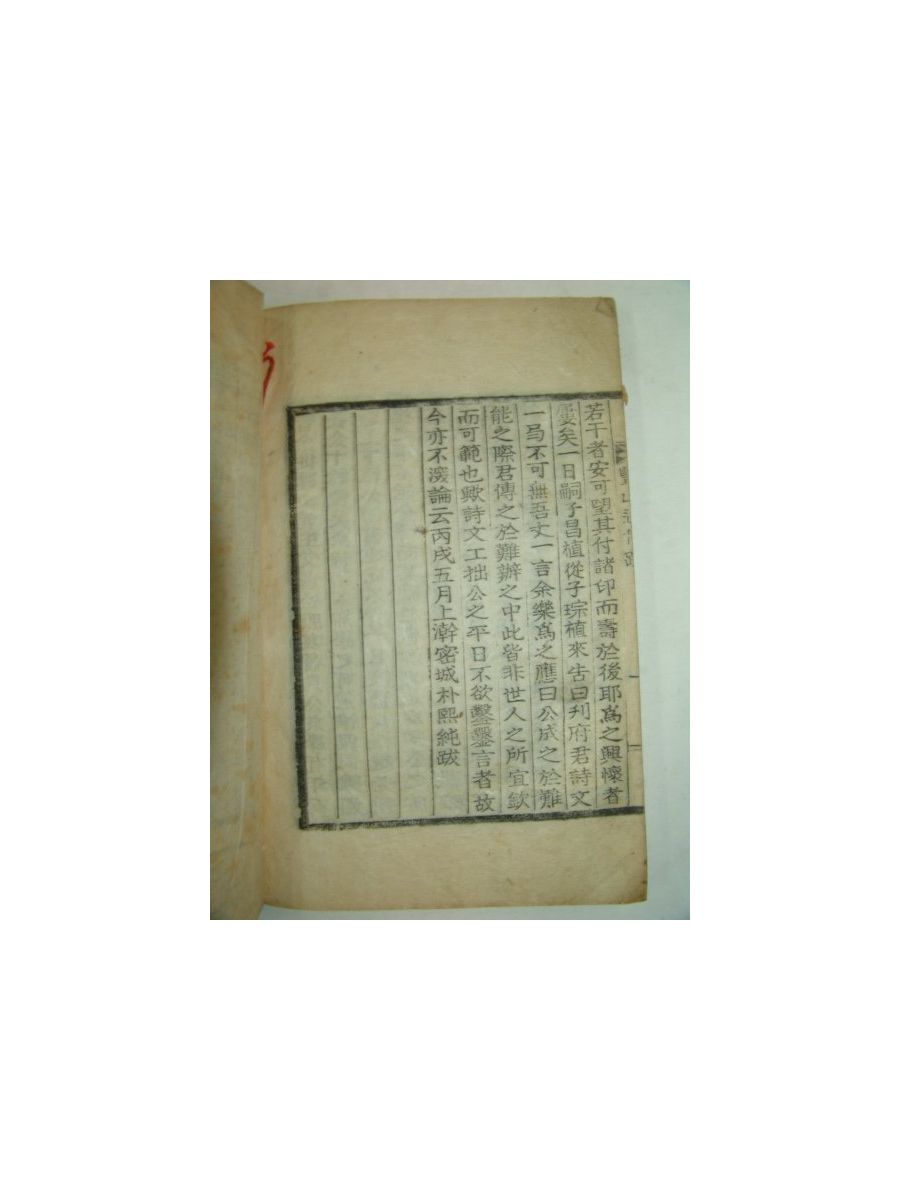 若干者安可望其付諸印而壽於後耶爲之興懷者
屢矣一日嗣子昌植從子琮植來告曰刋府君詩文
一局不可無吾丈一言余樂爲之應曰公成之於難
能之際君傳之於難辦之中此皆非世人之所宜欽
而可範也歟詩文工拙公之平日不欲鑿鑿言者故
今亦不溇論云丙戌五月上澣密城朴熙純跋